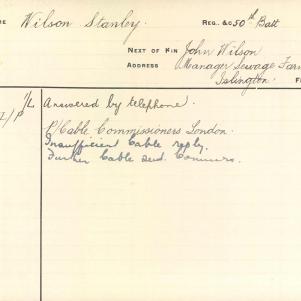 Wilson Stanley. REG. &C 50th Batt
NEXT OF KIN John Wilson
ADDRESS Manager Sewage Farm
Islington.
1/L Answered by telephone.
P/Cable Commissioners London.
Insufficient Cable reply.
Further Cable send Commrs.